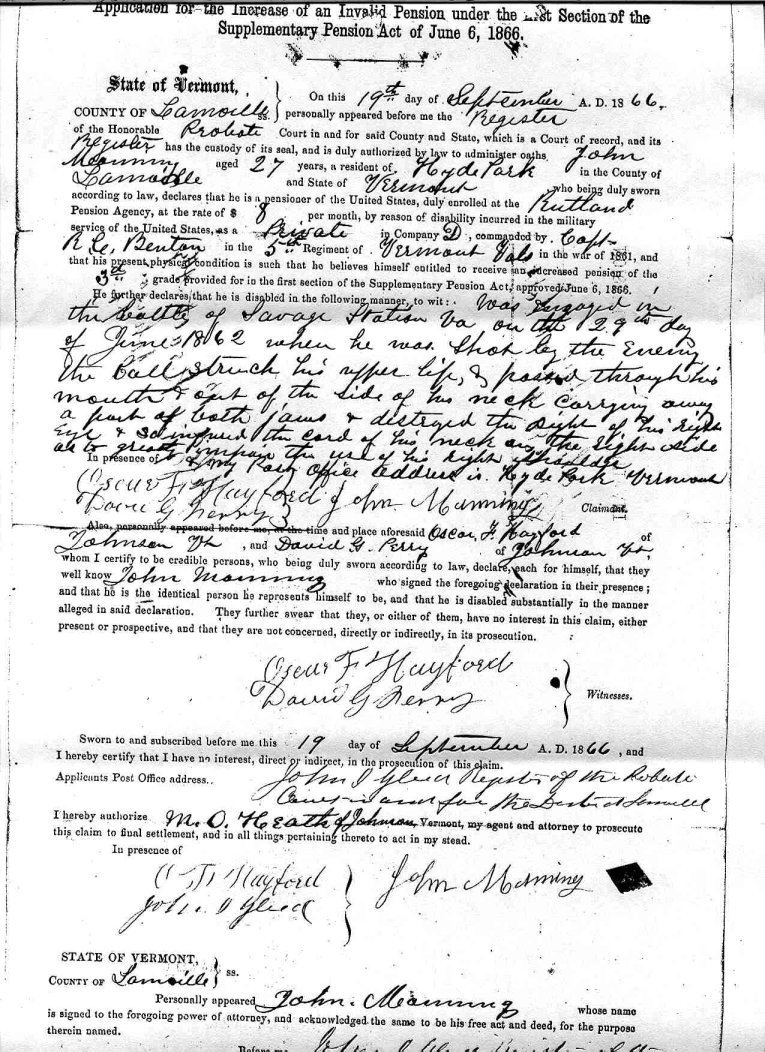 Application for the Increase of an Invalid Pension under the 1st Section of the
Supplementary Pension Act of June 6, 1866.
State of Vermont,
COUNTY OF Lamoille ss. } On this 19th day of September A. D. 1866,
personally appeared before me the Register
of the Honorable Probate Court in and for said County and State, which is a Court of record, and its
Register has the custody of its seal, and is duly authorized by law to administer oaths John
Manning aged 27 years, a resident of Hyde Park in the County of
Lamoille and State of Vermont who being duly sworn
according to law, declares that he is a pensioner of the United States, duly enrolled at the Rutland
Pension Agency, at the rate of $ 8 per month, by reason of disability incurred in the military
service of the United States, as a Private in Company D, commanded by Capt
Benton in the 5th Regiment of Vermont Vols in the war of 1861, and
that his present physical condition is such that he believes himself entitled to receive an increased pension of the
3d grade provided for in the first section of the Supplementary Pension Act, approved June 6, 1866.
He further declares that he is disabled in the following manner, to wit: Was Engaged in
the battle of Savage Station Va on the 29th day
of June 1862 when he was Shot by the Enemy
the ball struck his upper lip, & passed through his
mouth & out of the side of his neck carrying away
a part of both jaws & destroyed the sight of his right
Eye & so injured the cord of his neck on the right side
as to greatly impair the use of his right shoulder
In presence of & my Post Office address is Hyde Park Vermont
Oscar F Hayford
David G Perry } John Manning Claimant.
Also, personally appeared before me, at the time and place aforesaid Oscar F. Hayford of
Johnson Vt, and David G. Perry of Johnson Vt,
whom I certify to be credible persons, who being duly sworn according to law, declare, each for himself, that they
well know John Manning who signed the foregoing declaration in their presence;
and that he is the identical person he represents himself to be, and that he is disabled substantially in the manner
alleged in said declaration. They further swear that they, or either of them, have no interest in this claim, either
present or prospective, and that they are not concerned, directly or indirectly, in its prosecution.
Oscar F Hayford
David G Perry } Witnesses.
Sworn to and subscribed before me this 19 day of September A. D. 1866, and
I hereby certify that I have no interest, direct or indirect, in the prosecution of this claim.
Applicants Post Office address.. John J Gleed Register of the Probate
Court in and for the District Lamoille
I hereby authorize M. O. Heath of Johnson Vermont, my agent and attorney to prosecute
this claim to final settlement, and in all things pertaining thereto to act in my stead.
In presence of
O F Hayford
John J Gleed } John Manning
STATE OF VERMONT,
COUNTY OF Lamoille } ss.
Personally appeared John Manning whose name
is signed to the foregoing power of attorney, and acknowledged the same to be his free act and deed, for the purpose
therein named.
Before me